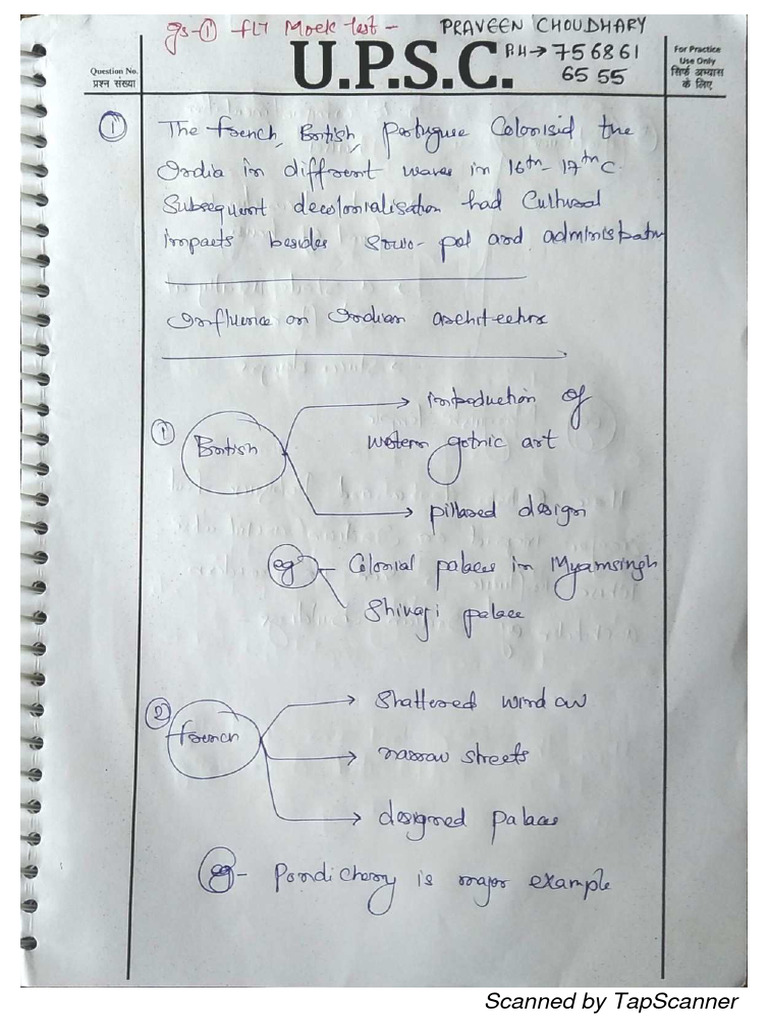 GS-① FLT Mock Test - PRAVEEN CHOUDHARY
U.P.S.C. PH→ 756861
6555
For Practice
Use Only
सिर्फ अभ्यास
के लिए
Question No.
प्रश्न संख्या
① The French, British, Portuguse Colonisid the
India in different waves in 16th-17th C.
Subsequent decolonialisation had Cultural
impacts besides Socio-pol and administrativ
Influence on Indian architechre
① British → introduction of
western gothic art
→ pillared design
eg - Colonial palaces in Myamsingh
Shivaji palace
② French → Shattered window
→ narrow streets
→ designed palaces
eg - Pondicherry is major example
Scanned by TapScanner